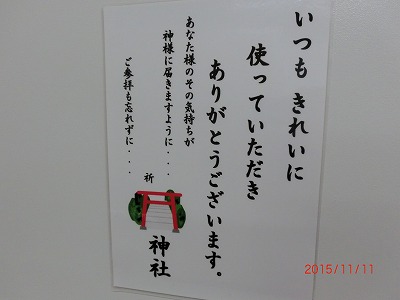 いつも きれいに
使っていただき
ありがとうございます。
あなた様のその気持ちが
神様に届きますように・・・
ご参拝も忘れずに・・・・
祈
神社
2015/11/11